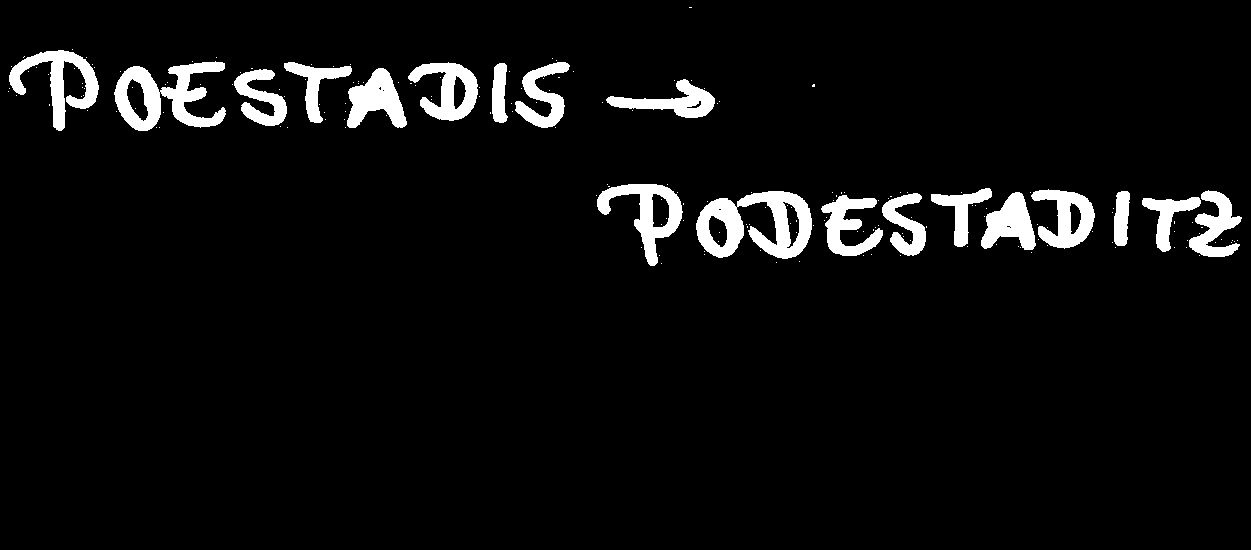 POESTADIS →
PODESTADITZ